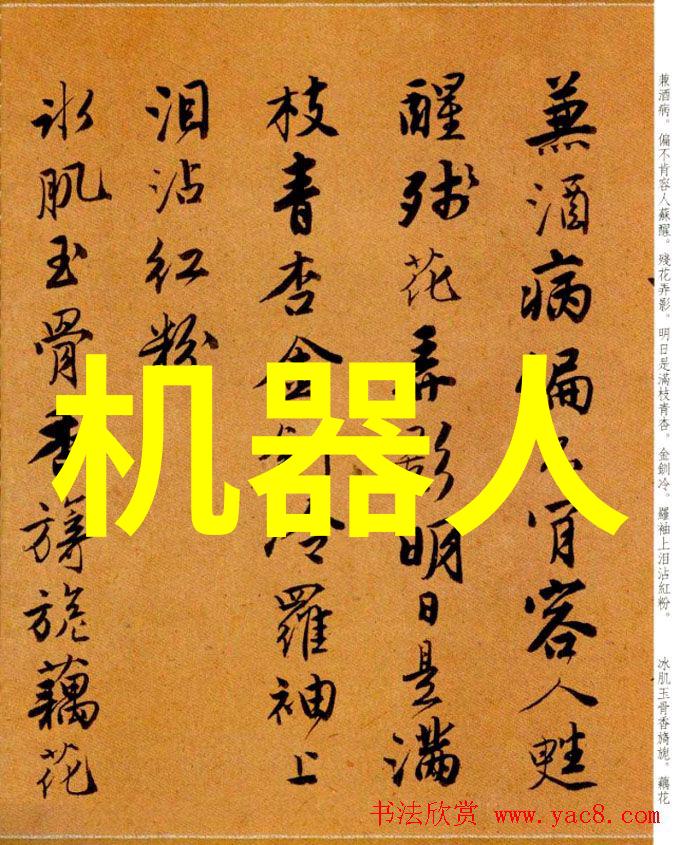 兼酒病。偏不肯容人蘇醒。殘花弄影。明日是滿枝青杏。金釧冷。羅袖上泪沾紅粉。 冰肌玉骨香旖旎。藕花
兼酒病偏不肯容人甦
醒殘花弄影明日是滿
枝青杏金釧冷羅袖上
泪沾紅粉
冰肌玉骨香旖旎藕花
机器人
书法欣赏 www.yac8.com